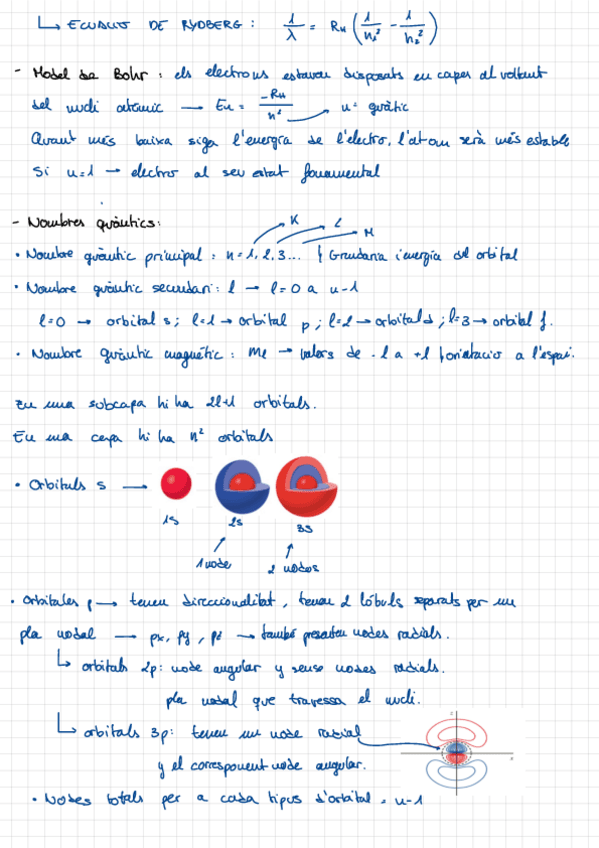 ↳ EQUACIÓ DE RYDBERG : 1/λ = RH (1/n₁² - 1/n₂²)
- Model de Bohr : els electrons estavan disposats en capes al voltant
del nucli atòmic → En = -RH/n² → n = quàntic
Quant més baixa siga l'energia de l'electró, l'àtom serà més estable
Si n=1 → electró al seu estat fonamental
- Nombres quàntics:
K L M
• Nombre quàntic principal : n = 1, 2, 3... } Grandaria i energia del orbital
• Nombre quàntic secundari : l → l=0 a n-1
l=0 → orbital s; l=1 → orbital p; l=2 → orbital d; l=3 → orbital f.
• Nombre quàntic magnétic : ml → valors de -l a +l } orientació a l'espai.
En una subcapa hi ha 2l+1 orbitals.
En una capa hi ha n² orbitals
• Orbitals s →
1s 2s 3s
1 node 2 nodes
• Orbitales p → tenen direccionalitat, tenen 2 lóbuls separats per un
pla nodal → px, py, pz → també presenten nodes radials.
↳ orbitals 2p: node angular y sense nodes radials.
pla nodal que travessa el nucli.
↳ orbitals 3p: tenen un node radial
y el corresponent node angular.
• Nodes totals per a cada tipus d'orbital = n-1